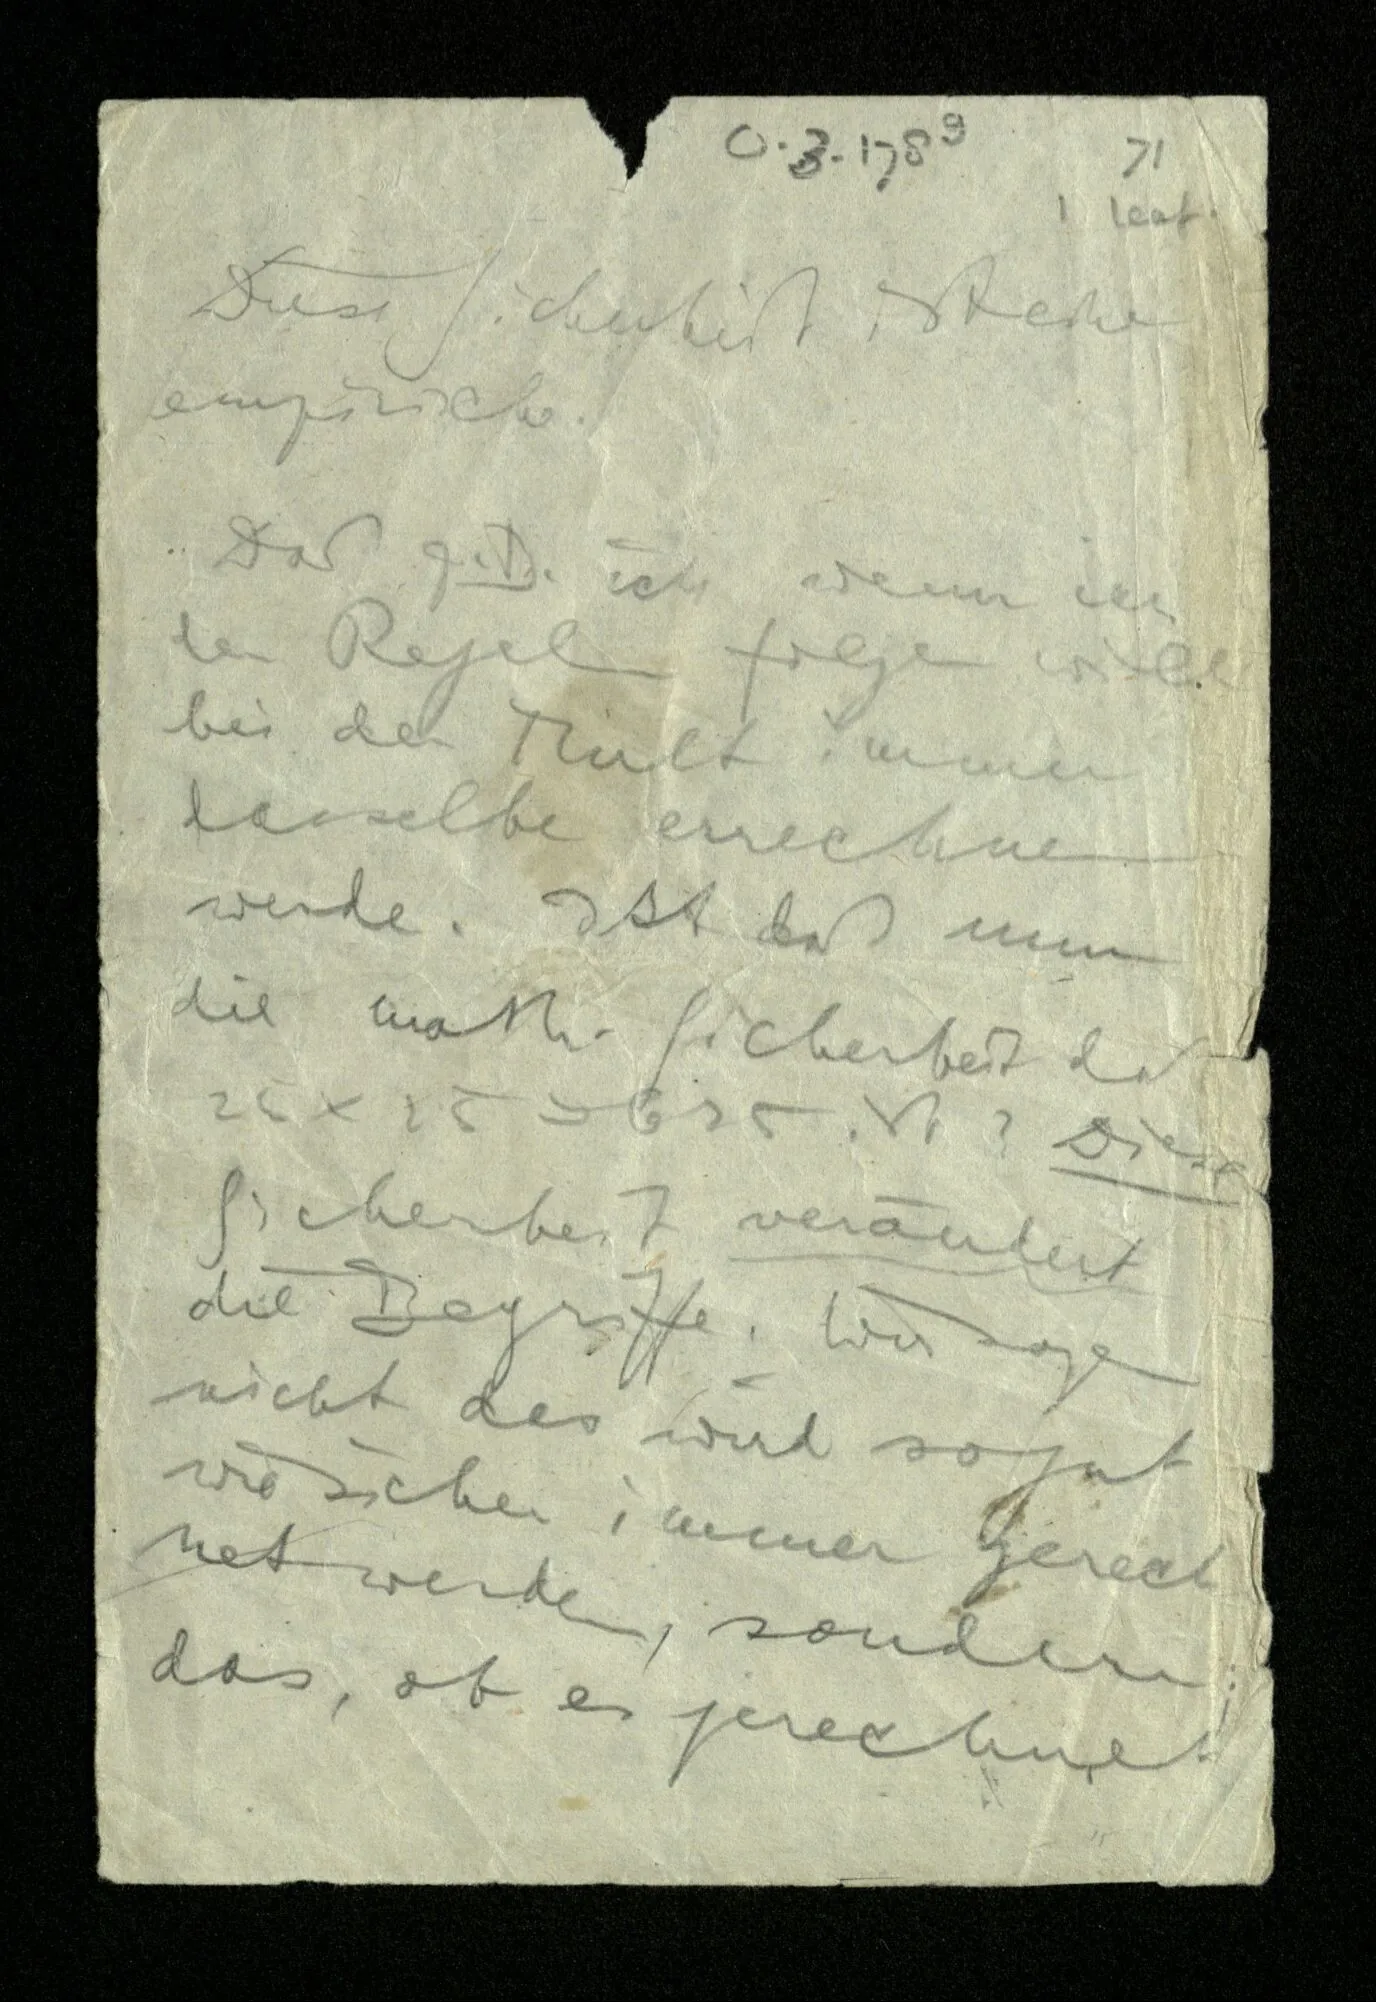 0.3.178⁹ 71
1 leaf
Diese Sicherheit ist eine
empirische.
Daß z.B. ich wenn ich
den Regeln folgen will
bei der Mult immer
dasselbe errechnen
werde. Ist das nun
die math. Sicherheit daß
25 × 25 = 625 ist? Diese
Sicherheit verändert
die Begriffe. Wir sagen
nicht das wird so gut
wie sicher immer gerech
net werden, sondern
das, ob es gerechnet